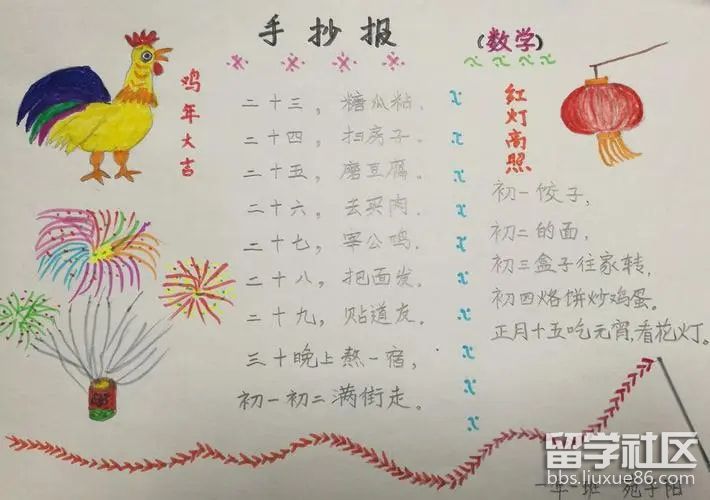 手抄报
(数学)
鸡年大吉
二十三，糖瓜粘.
二十四，扫房子.
二十五，磨豆腐.
二十六，去买肉
二十七，宰公鸡.
二十八，把面发.
二十九，贴道友.
三十晚上熬一宿，
初一初二满街走。
红灯高照
初一饺子，
初二的面，
初三盒子往家转，
初四烙饼炒鸡蛋。
正月十五吃元宵，看花灯。
留学社区
bbs.liuxue86.com